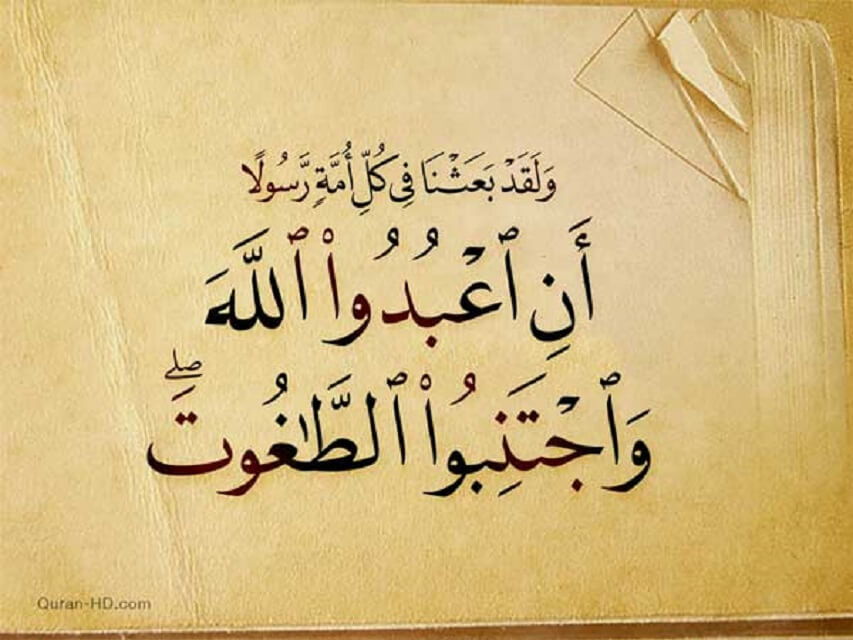 وَلَقَدْ بَعَثْنَا فِى كُلِّ أُمَّةٍ رَّسُولًا
أَنِ ٱعْبُدُوا۟ ٱللَّهَ
وَٱجْتَنِبُوا۟ ٱلطَّٰغُوتَ ۖ
Quran-HD.com